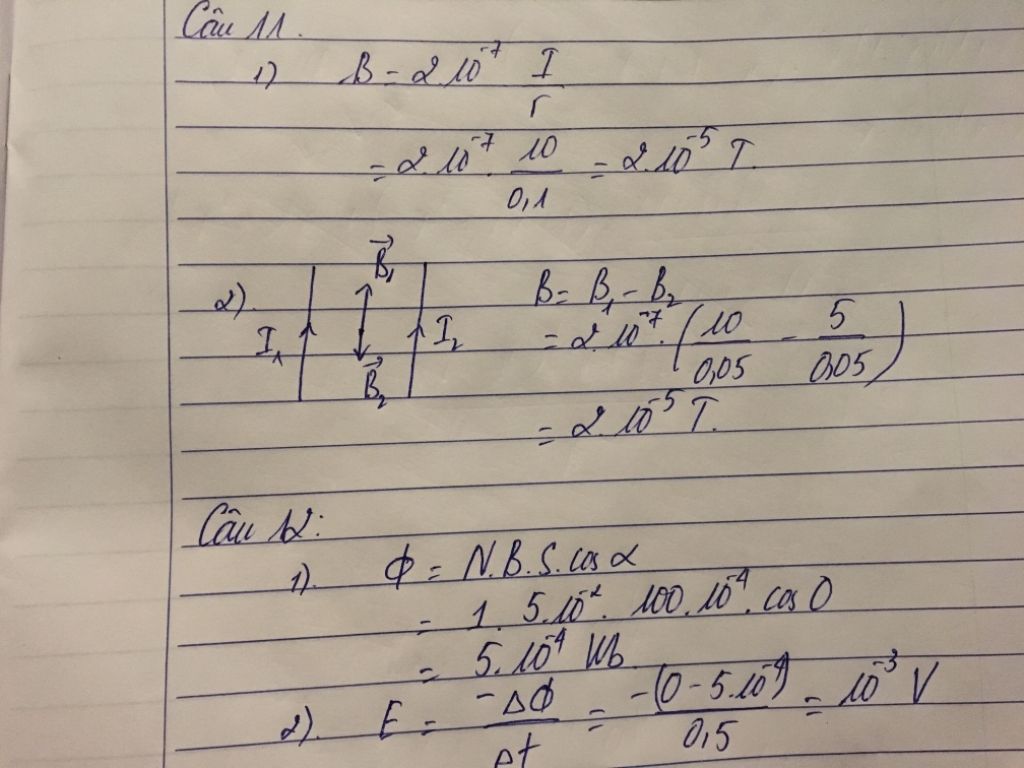 Câu 11.
1) B = 2.10⁻⁷ I/r
= 2.10⁻⁷ . 10/0,1 = 2.10⁻⁵ T.
2). I₁ B⃗₁ B⃗₂ I₂
B = B₁ - B₂
= 2.10⁻⁷ . (10/0,05 - 5/0,05)
= 2.10⁻⁵ T.
Câu 12:
1). Φ = N.B.S.cos α
= 1. 5.10⁻² . 100.10⁻⁴ . cos 0
= 5.10⁻⁴ Wb
2). E = -ΔΦ/Δt = -(0 - 5.10⁻⁴)/0,5 = 10⁻³ V